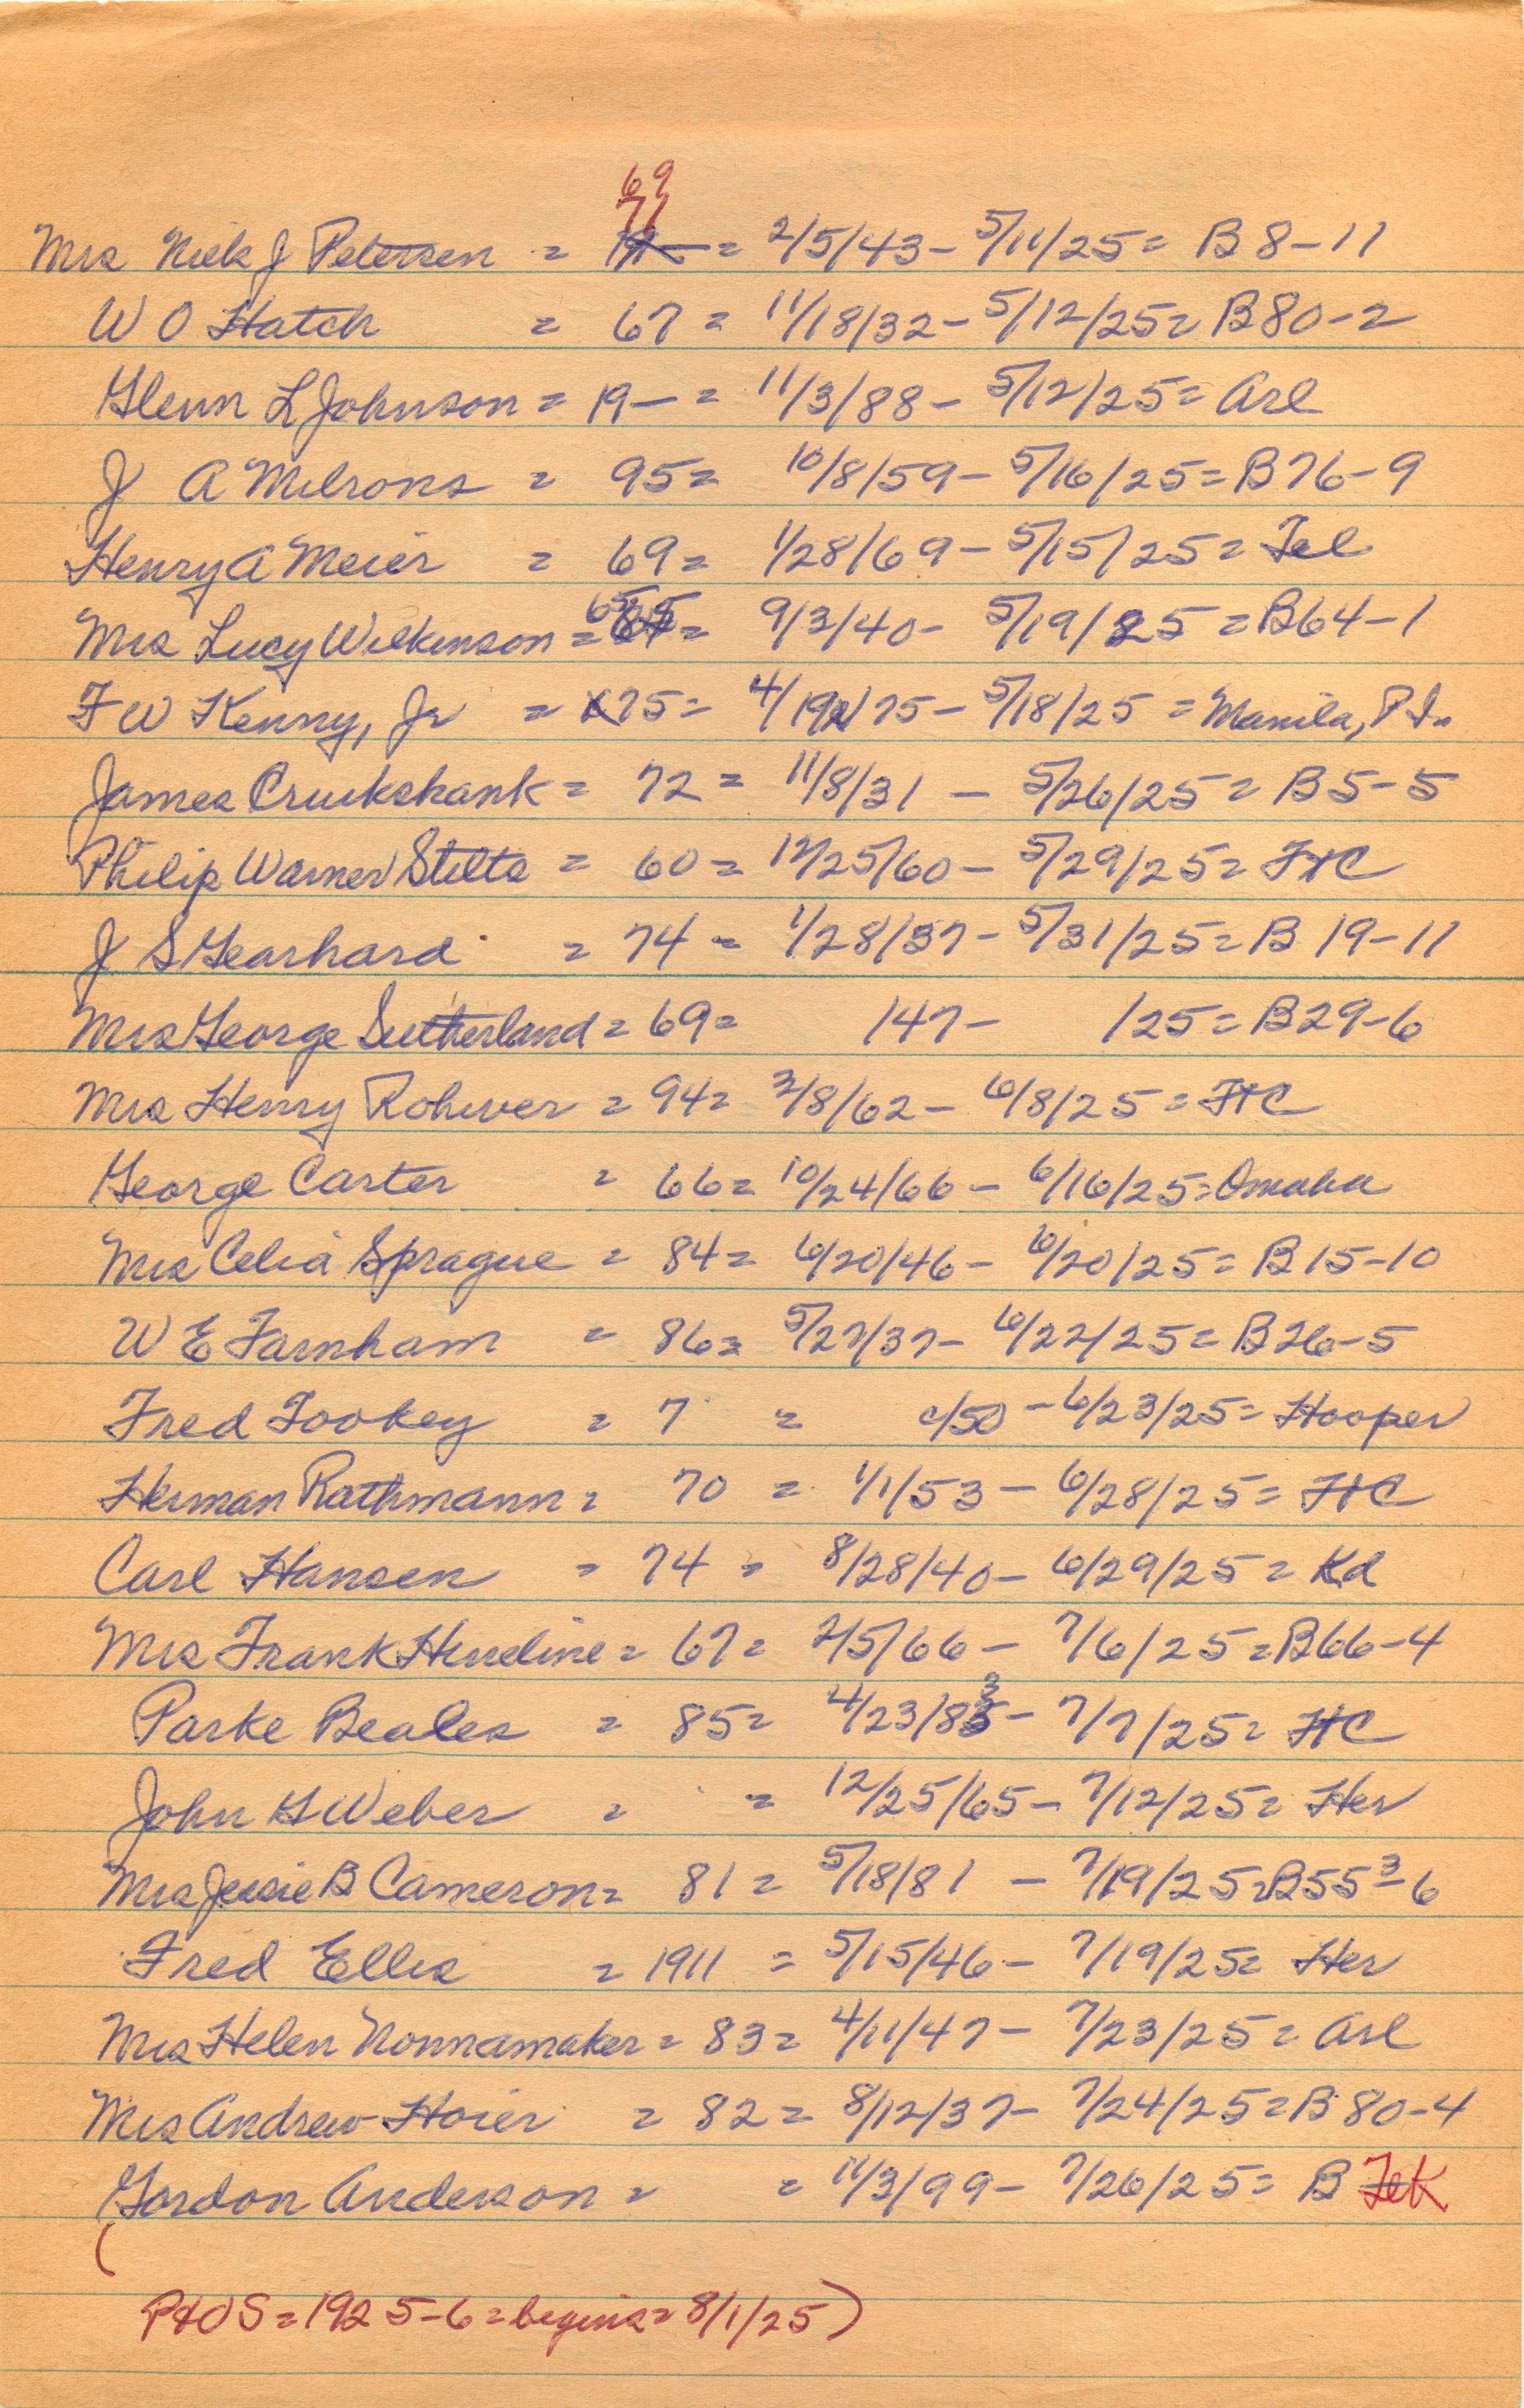 69
71
Mrs Niels J Petersen = = 2/5/43 - 5/11/25 = B 8-11
W O Hatch = 67 = 11/18/32 - 5/12/25 = B 80-2
Glenn L Johnson = 19— = 11/3/88 - 5/12/25 = Arl
J A Milrons = 95 = 10/8/59 - 5/16/25 = B 76-9
Henry A Meier = 69 = 1/28/69 - 5/15/25 = Tel
Mrs Lucy Wilkinson = 65 = 9/3/40 - 5/19/25 = B64-1
F W Kenny, Jr = 75 = 4/19/75 - 5/18/25 = Manila, P I.
James Cruikshank = 72 = 11/8/31 - 5/26/25 = B5-5
Philip Warner Stilts = 60 = 12/25/60 - 5/29/25 = FtC
J S Gearhard = 74 = 1/28/37 - 5/31/25 = B 19-11
Mrs George Sutherland = 69 = /47 - /25 = B29-6
Mrs Henry Rohwer = 94 = 3/8/62 - 6/8/25 = FtC
George Carter = 66 = 10/24/66 - 6/16/25 = Omaha
Mrs Celia Sprague = 84 = 6/20/46 - 6/20/25 = B 15-10
W E Farnham = 86 = 5/27/37 - 6/22/25 = B26-5
Fred Tookey = 7 = c/50 - 6/23/25 = Hooper
Herman Rathmann = 70 = 1/1/53 - 6/28/25 = FtC
Carl Hansen = 74 = 8/28/40 - 6/29/25 = Kd
Mrs Frank Hineline = 67 = 2/5/66 - 7/6/25 = B66-4
Parke Beales = 85 = 4/23/83 - 7/7/25 = FtC
John G Weber = = 12/25/65 - 7/12/25 = Her
Mrs Jessie B Cameron = 81 = 5/18/81 - 7/19/25 = B55 3-6
Fred Ellis = 1911 = 5/15/46 - 7/19/25 = Her
Mrs Helen Nonnamaker = 83 = 4/11/47 - 7/23/25 = Arl
Mrs Andrew Hoier = 82 = 8/12/37 - 7/24/25 = B 80-4
Gordon Anderson = = 11/3/99 - 7/26/25 = B TeK
(
P&OS = 1925-6 = begins = 8/1/25)